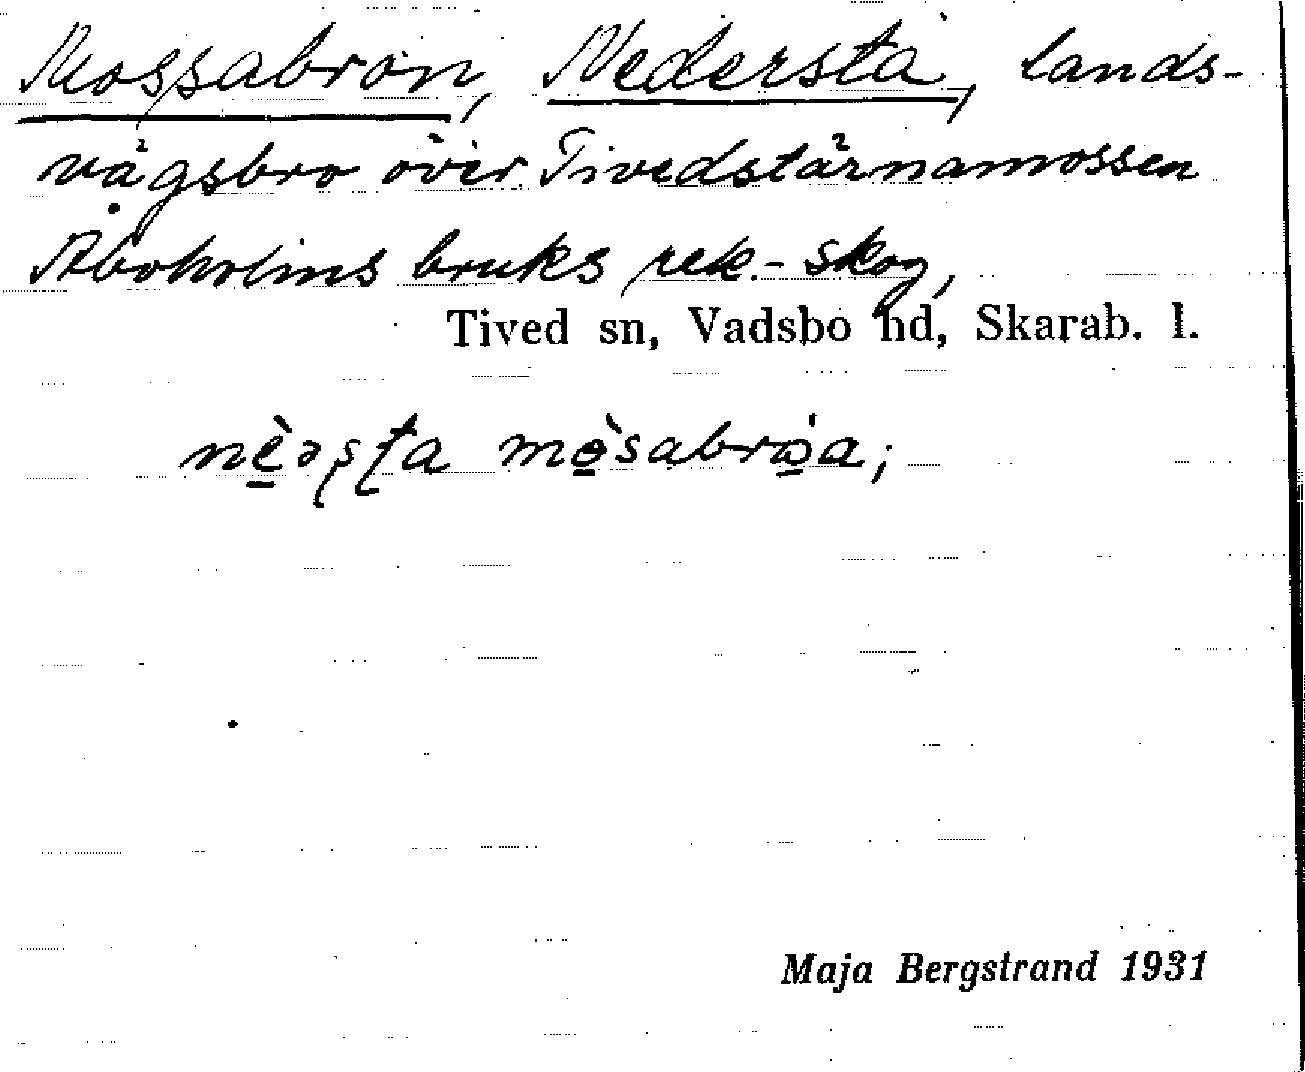 Mossabron, Nedersta, lands-
vägsbro över Tivedstärnamossen
Åboholms bruks rek.-skog,
Tived sn, Vadsbo hd, Skarab. l.
mosabroa;
Maja Bergstrand 1931